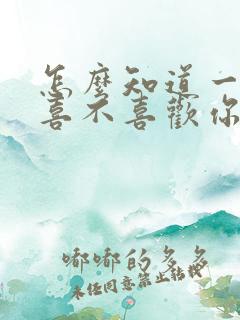 怎麼知道一
喜不喜歡你
嘟嘟的多多
未任同意禁止轉載